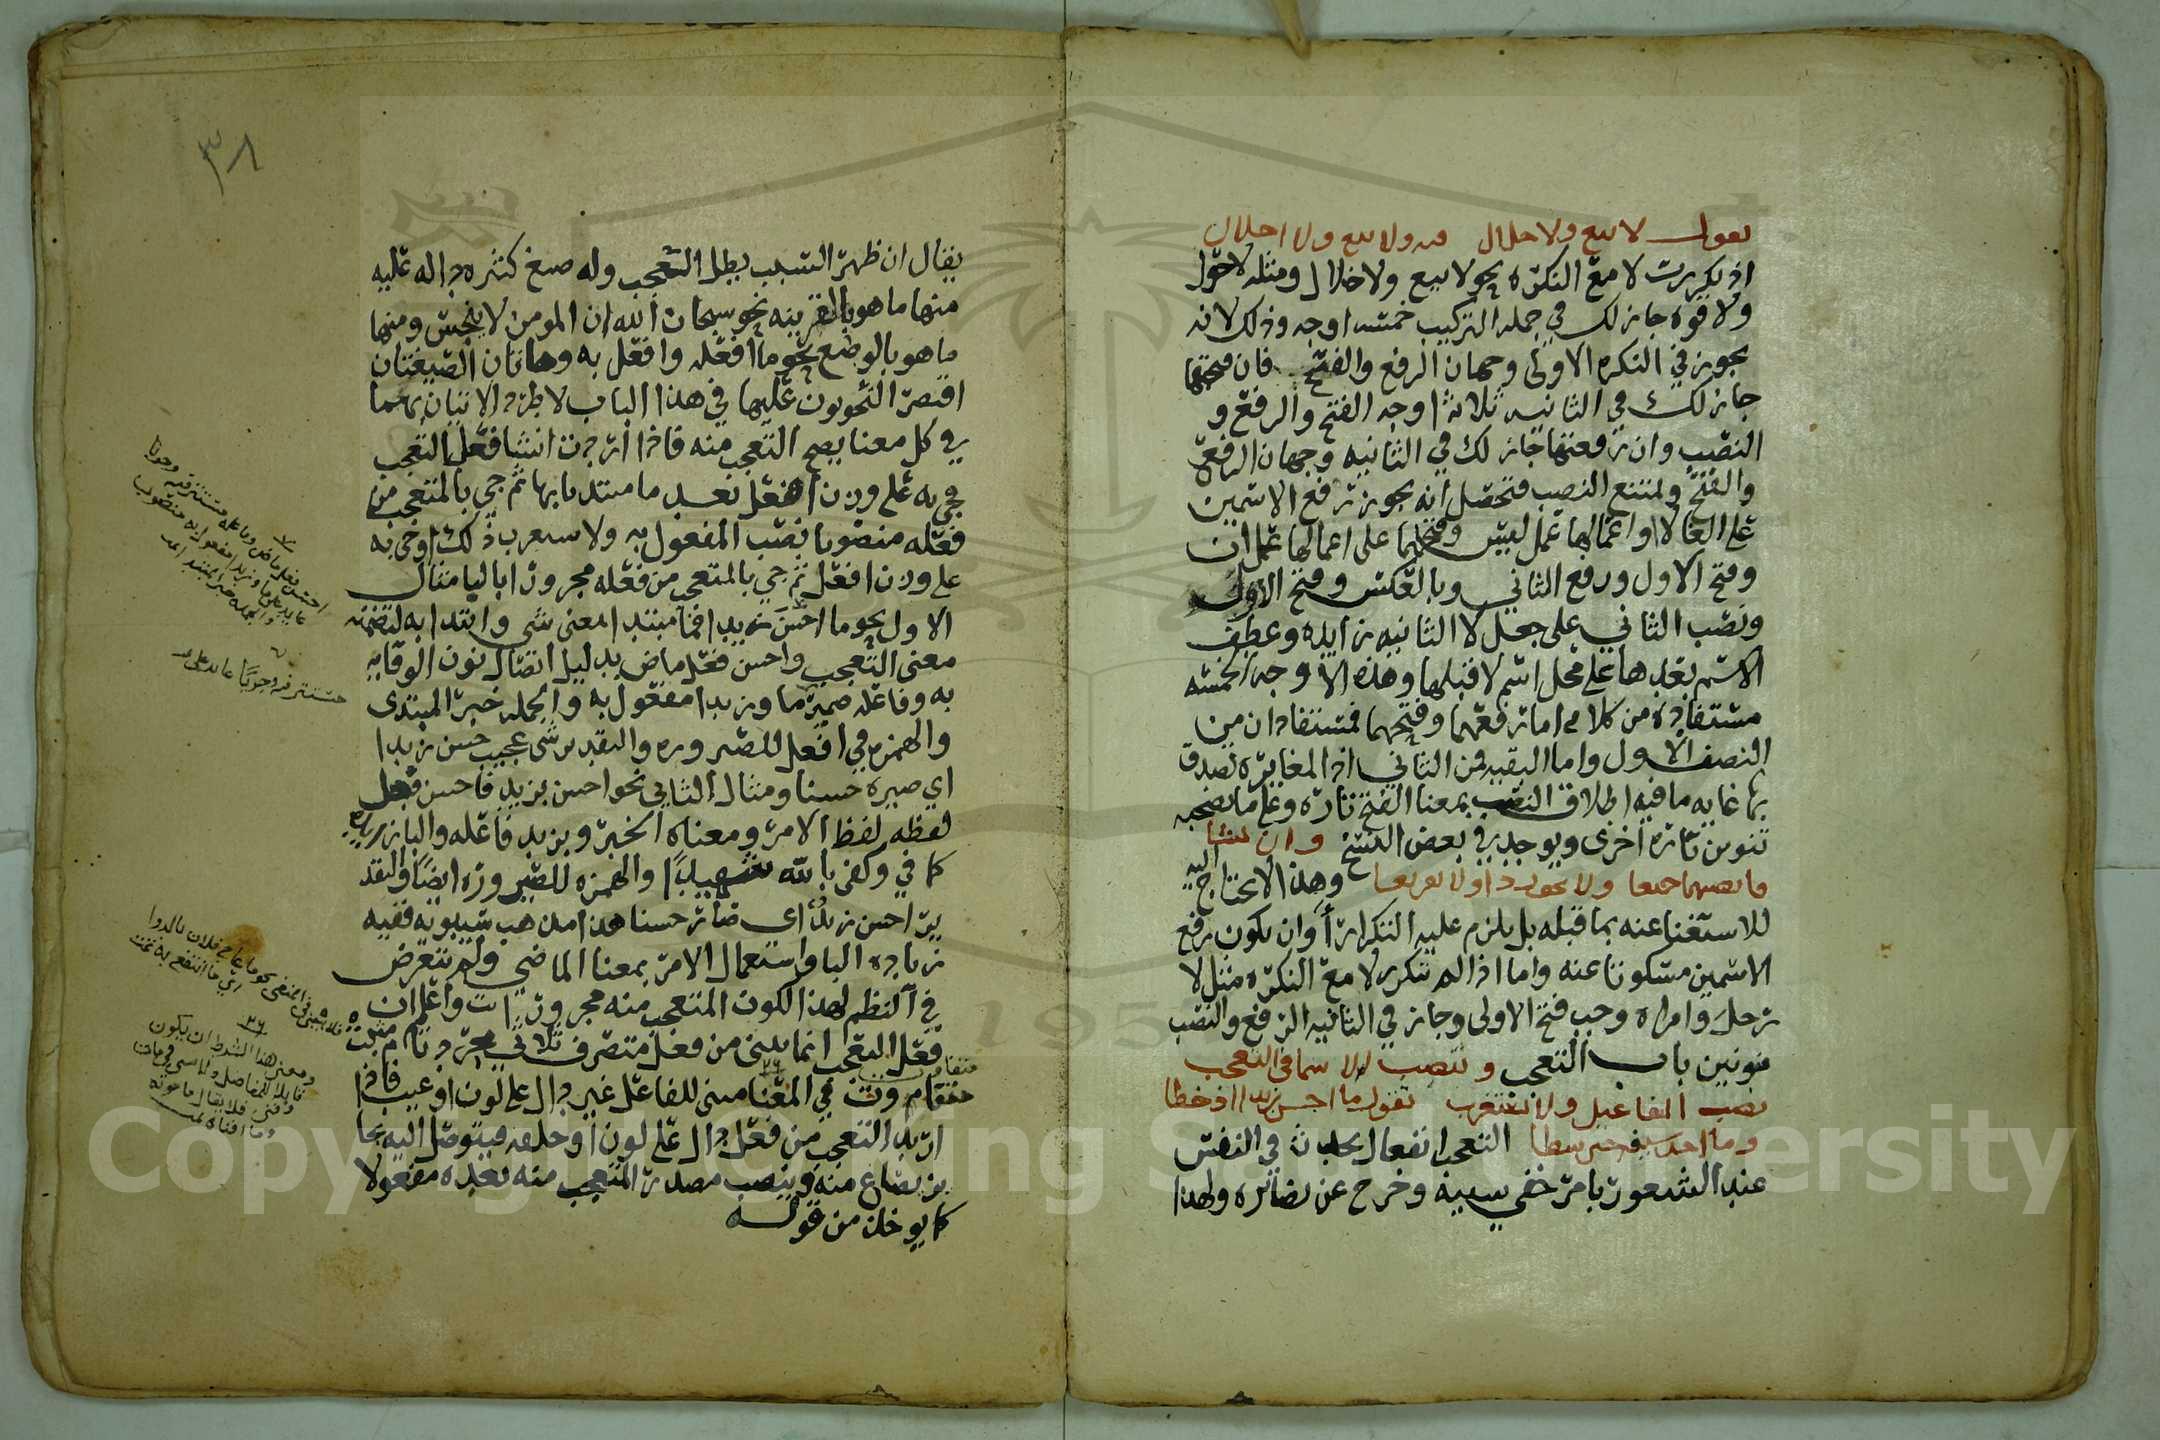 تقول لا بيع ولا حلال فيه ولا بيع ولا اخلال
اذ تكررت لا مع النكره نحو لا بيع ولا خلال ومثله لا حول
ولا قوه جاز لك في جمله التركيب خمسه اوجه وذلك لانه
يجوز في النكره الاولى وجهان الرفع والفتح فان فتحتها
جاز لك في الثانيه ثلاثة اوجه الفتح والرفع و
النصب وان رفعتها جاز لك في الثانيه وجهان الرفع
والفتح ولمتنع النصب فتحصل انه يجوز رفع الاسمين
على الغا لا او اعمالها عمل ليس وفتحهما على اعمالها عمل ان
وفتح الاول ورفع الثاني وبالعكس وفتح الاول
ونصب الثاني على جعل لا الثانيه زايده وعطف
الاسم بعدها على محل اسم لا قبلها وهذه الاوجه الخمسه
مستفاده من كلامه اما رفعهما وفتحهما فمستفادان من
النصف الاول واما البقيه فمن الثاني اذ المغايره تصدق
بها غايه ما فيه اطلاق النصب بمعنا الفتح تاره وعلى ما يصحبه
تنوين تاره اخرى ويوجد في بعض النسخ وان تشا
فانصبهما جميعا ولا تخف ردا ولا تقريعا وهذا لا يحتاج اليه
للاستغنا عنه بما قبله بل يلزم عليه التكرار وان يكون رفع
الاسمين مسكوتا عنه واما اذا لم تتكرر لا مع النكره مثل لا
رجل وامراه وجب فتح الاولى وجاز في الثانيه الرفع والنصب
منونين باب التعجب وتنصب الاسما في التعجب
نصب المفاعيل ولا تستغرب تقول ما احسن زيدا اذ خطا
وما احد سيفه حين سطا التعجب انفعال يحدث في النفس
عند الشعور بامر خفي سببه وخرج عن نظائره ولهذا
٣٨
يقال ان ظهر السبب بطل التعجب وله صيغ كثيره داله عليه
منها ما هو بالقرينه نحو سبحان الله ان المومن لا ينجس ومنها
ما هو بالوضع نحو ما افعله وافعل به وهاتان الصيغتان
اقتصر النحويون عليها في هذا الباب لاطراد الاتيان بهما
في كل معنا يصح التعجب منه فاذا اردت انشا فعل التعجب
فجي به على وزن افعل بعد ما مبتدابها ثم جي بالمتعجب من
فعله منصوبا نصب المفعول به ولا سعرب ذلك او جي به
على وزن افعل ثم جي بالمتعجب من فعله مجرورا بالبا مثال
الاول نحو ما احسن زيدا فما مبتدا بمعنى شي وابتدا به لتضمنه
معنى التعجب واحسن فعل ماض بدليل اتصال نون الوقايه
به وفاعله ضمير ما وزيدا مفعول به والجمله خبر المبتدى
والهمزه في افعل للصيروره والتقدير شي عجيب حسن زيدا
اي صيره حسنا ومثال الثاني نحو احسن بزيد فاحسن فعل
لفظه لفظ الامر ومعناه الخبر وبزيد فاعله والبا زايده
كما في وكفى بالله شهيدا والهمزه للصيروره ايضا والتقد
ير احسن زيد اي صار حسنا هذا مذهب سيبويه ففيه
زياده البا واستعمال الامر بمعنا الماضي ولم يتعرض
في النظم لهذا لكون المتعجب منه مجرورا ت واعلم ان
فعل التعجب انما يبنى من فعل متصرف ثلاثي مجرد تام مثبت
متفاوت في المعنا مبني للفاعل غير دال على لون او عيب فاذا
اريد التعجب من فعل دال على لون او خلقه فيتوصل اليه بما
يصاغ منه وينصب مصدر المتعجب منه بعده مفعولا
كما يوخذ من قوله
احسن فعل ماض وفاعله مستتر فيه وجوبا
عايد على ما وزيدا مفعول به منصوب
والجمله خبر المبتدا انتهى
مستتر فيه وجوبا عايد على
فلا يبنى من منفى نحو ما عاج فلان بالدوا
اي ما انتفع به تمت
ومعنى هذا الشرط ان يكون
قابلا للتفاضل ولا يبنى من مات
وفنى فلا يقال ما موته
وما افناه تمت